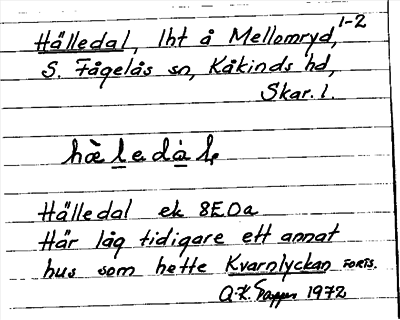 Hälledal, lht å Mellomryd, 1-2
S. Fågelås sn, Kåkinds hd,
Skar. l.
hæ̀ledàl,
Hälledal ek 8E0a
Här låg tidigare ett annat
hus som hette Kvarnlyckan FORTS.
A.-K. 1972